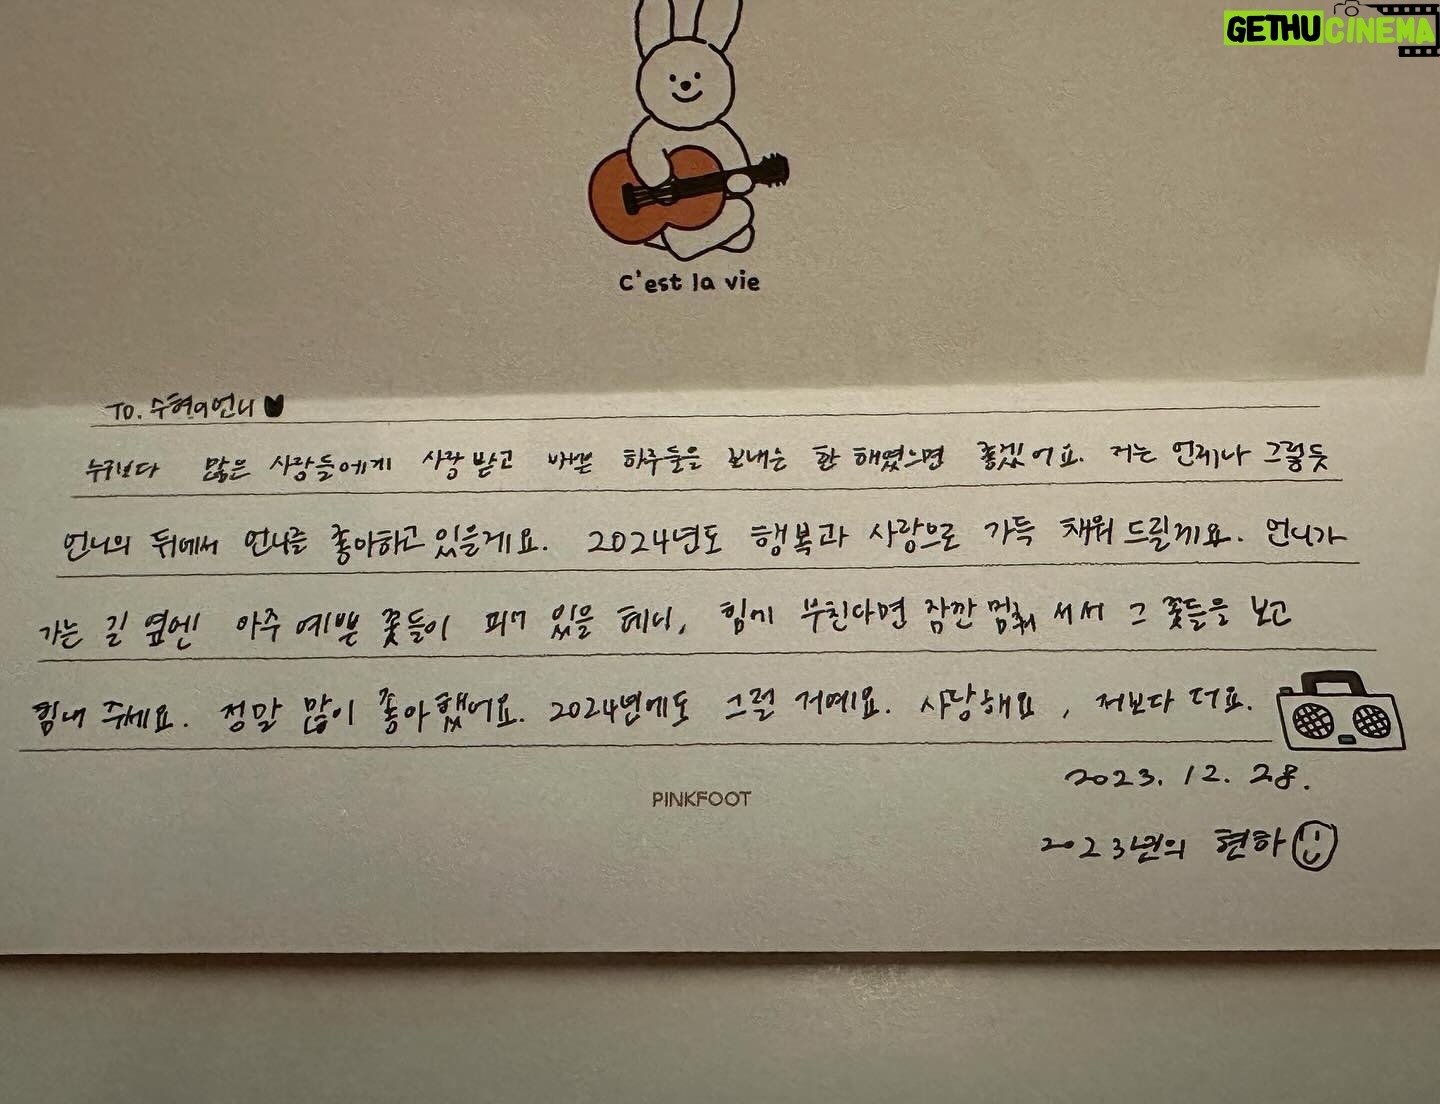 GETHUCINEMA
C'est la vie
TO. 수현이언니♥
누구보다 많은 사람들에게 사랑 받고 바쁜 하루들을 보내는 한 해였으면 좋겠어요. 저는 언제나 그렇듯
언니의 뒤에서 언니를 좋아하고 있을게요. 2024년도 행복과 사랑으로 가득 채워 드릴게요. 언니가
가는 길 옆엔 아주 예쁜 꽃들이 피어 있을 테니, 힘에 부친다면 잠깐 멈춰 서서 그 꽃들을 보고
힘내 주세요. 정말 많이 좋아했어요. 2024년에도 그럴 거예요. 사랑해요, 저보다 더요.
2023. 12. 28.
PINKFOOT
2023년의 현하